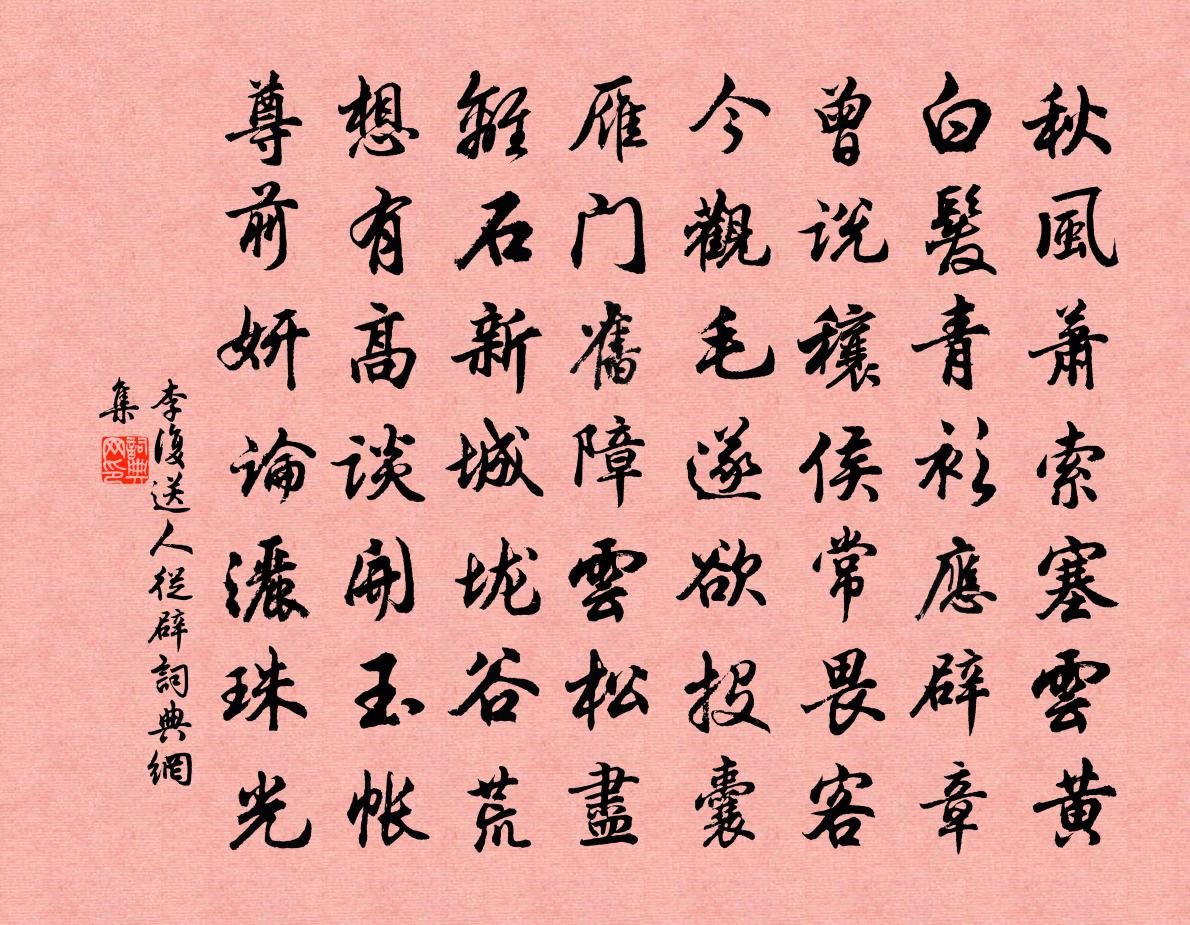 秋風蕭索塞雲黄
白髮青衫應辟章
曾説穰侯常畏客
今觀毛遂欲投囊
雁门舊障雲松盡
雞石新城垅谷荒
想有高談開玉帐
尊前妍論灑珠光
李復送人從辟詞典網
集